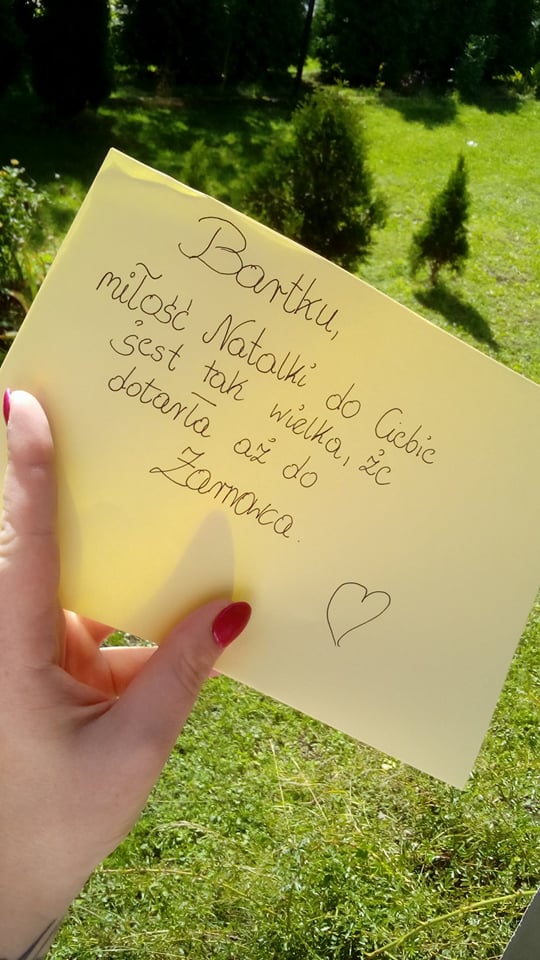 Bartku,
miłość Natalki do Ciebie
jest tak wielka, że
dotarła aż do
Żarnowca.